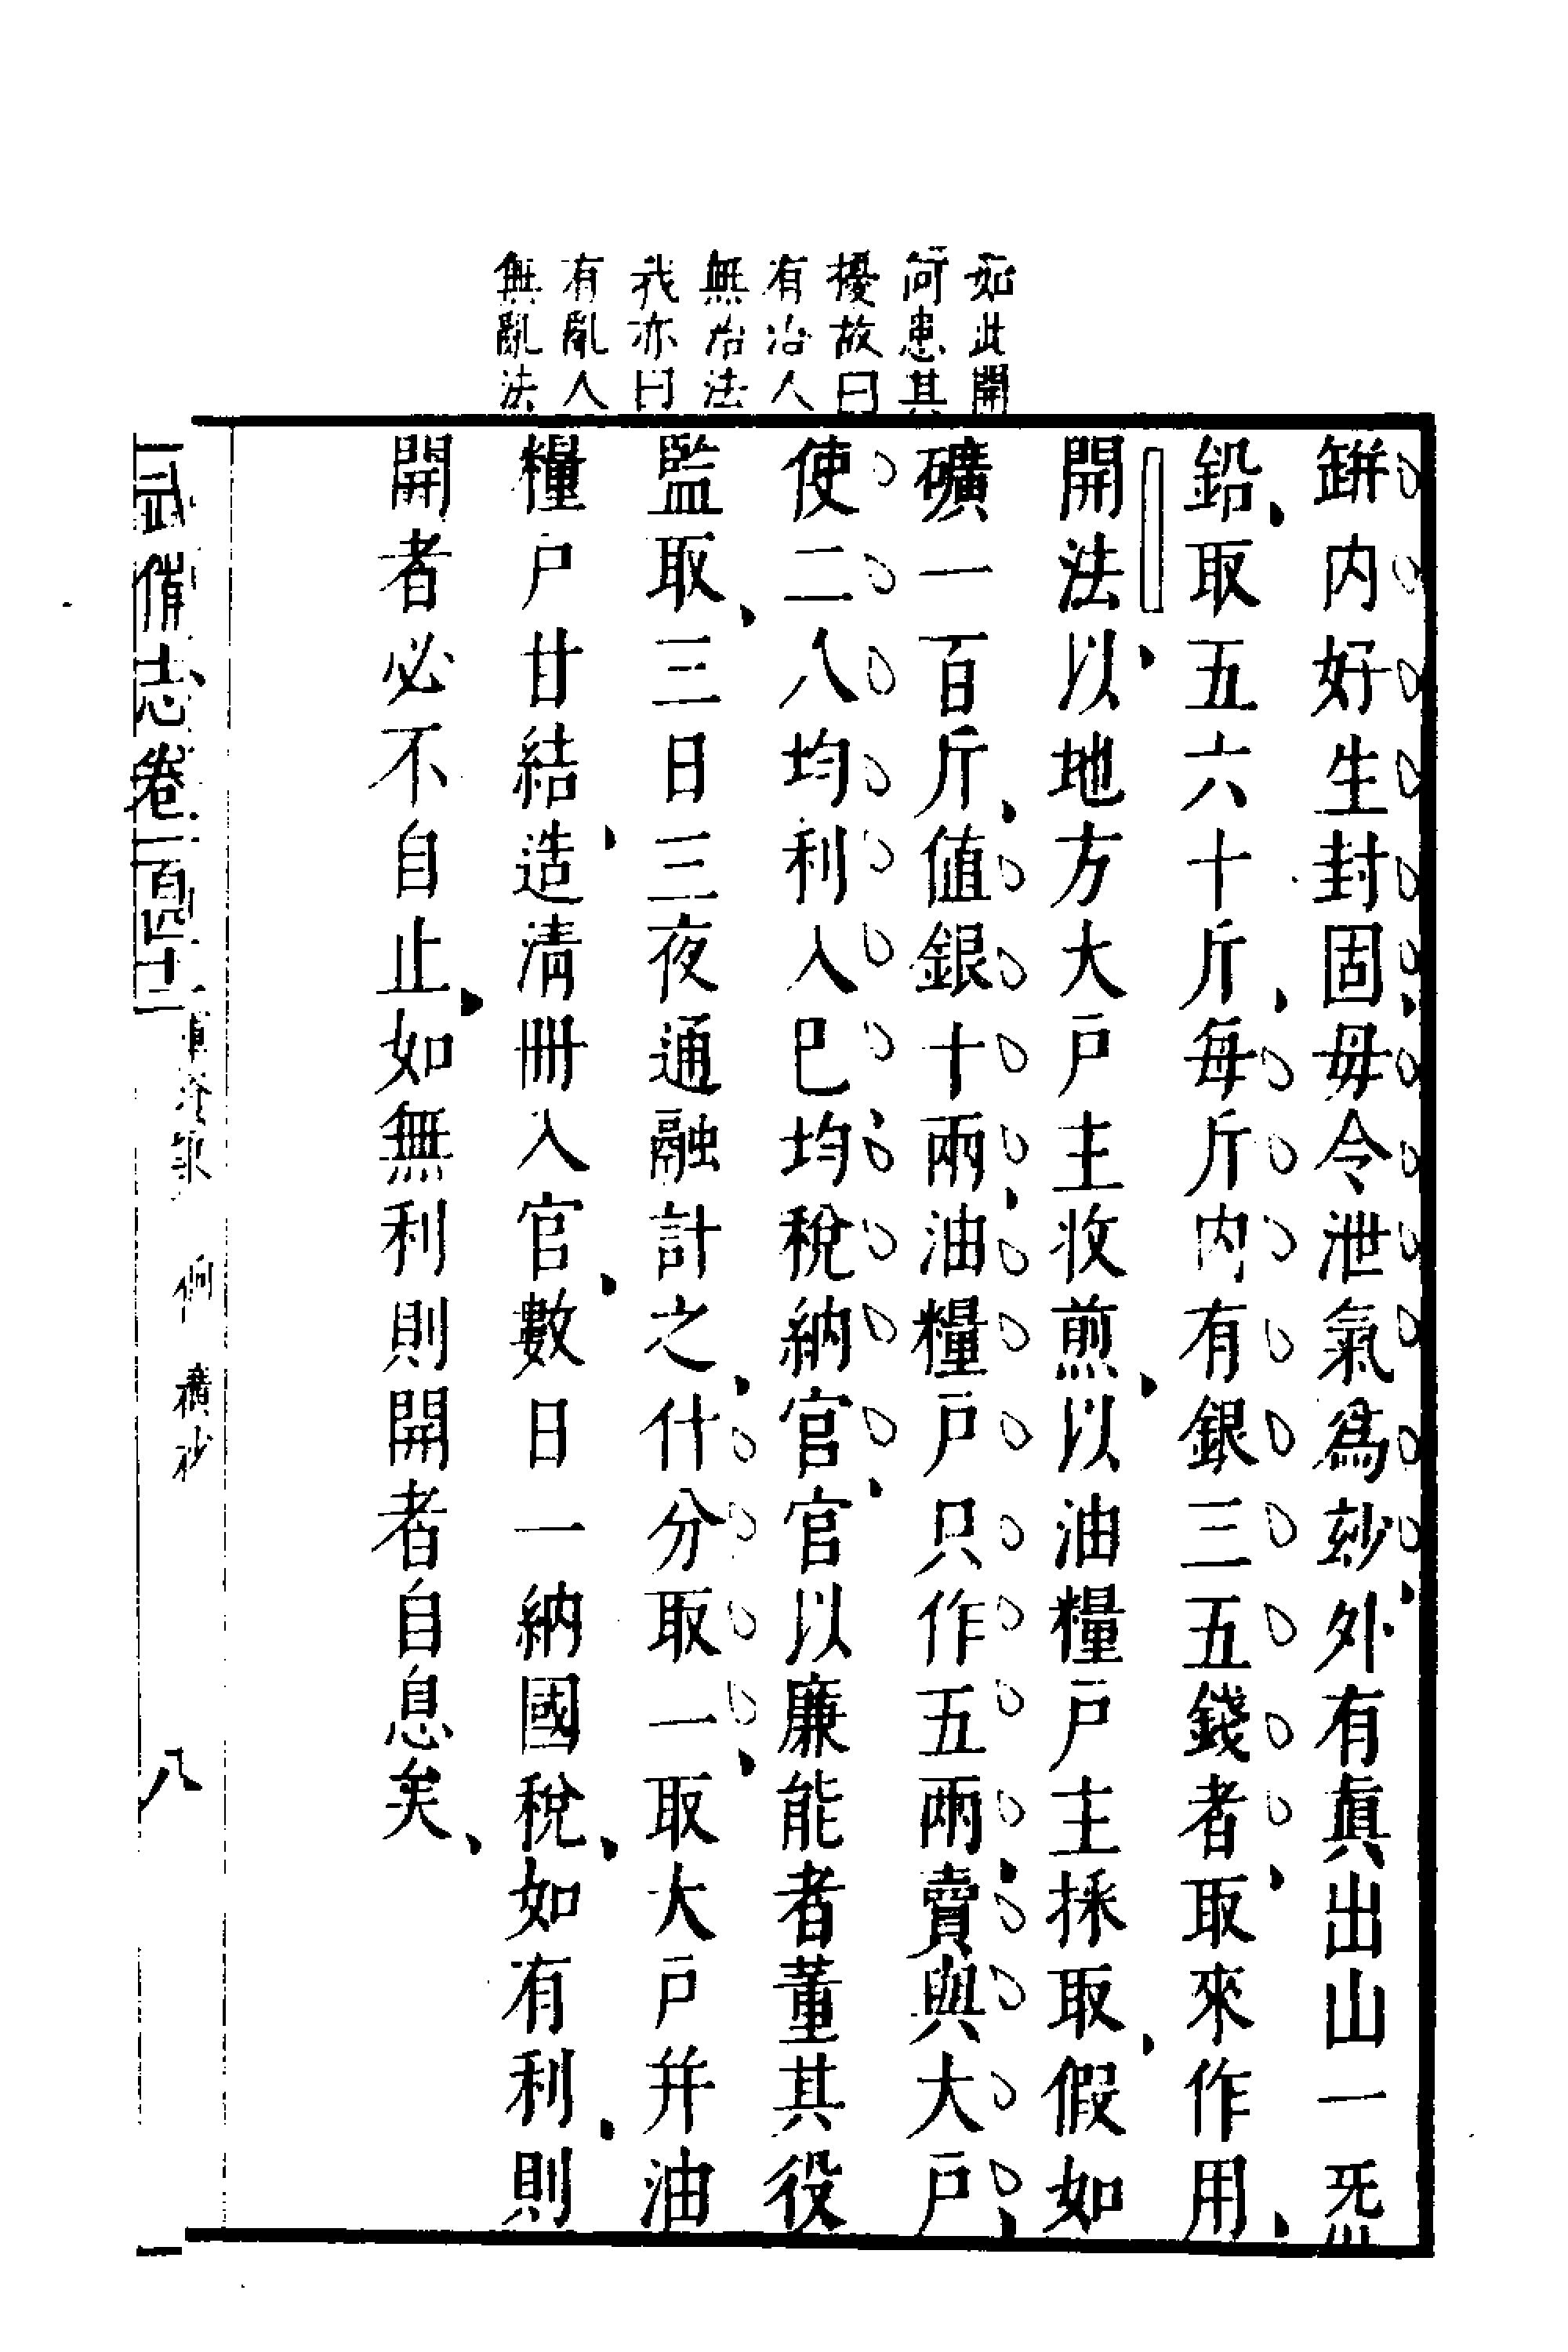 如此開
何患其
擾故曰
有治人
無治法
我亦曰
有亂人
無亂法
缾内好生封固毋令泄氣爲玅外有眞出山一
鉛取五六十斤每斤内有銀三五錢者取來作用
開法以地方大戶主收煎以油糧戶主採取假如
礦一百斤值銀十兩油糧戶只作五兩賣與大戶
使二八均利入巳均稅納官官以廉能者董其役
監取三日三夜通融計之什分取一取大戶幷油
糧戶甘結造淸冊入官數日一納國稅如有利則
開者必不自止如無利則開者自息矣
武備志卷一百四十二
八